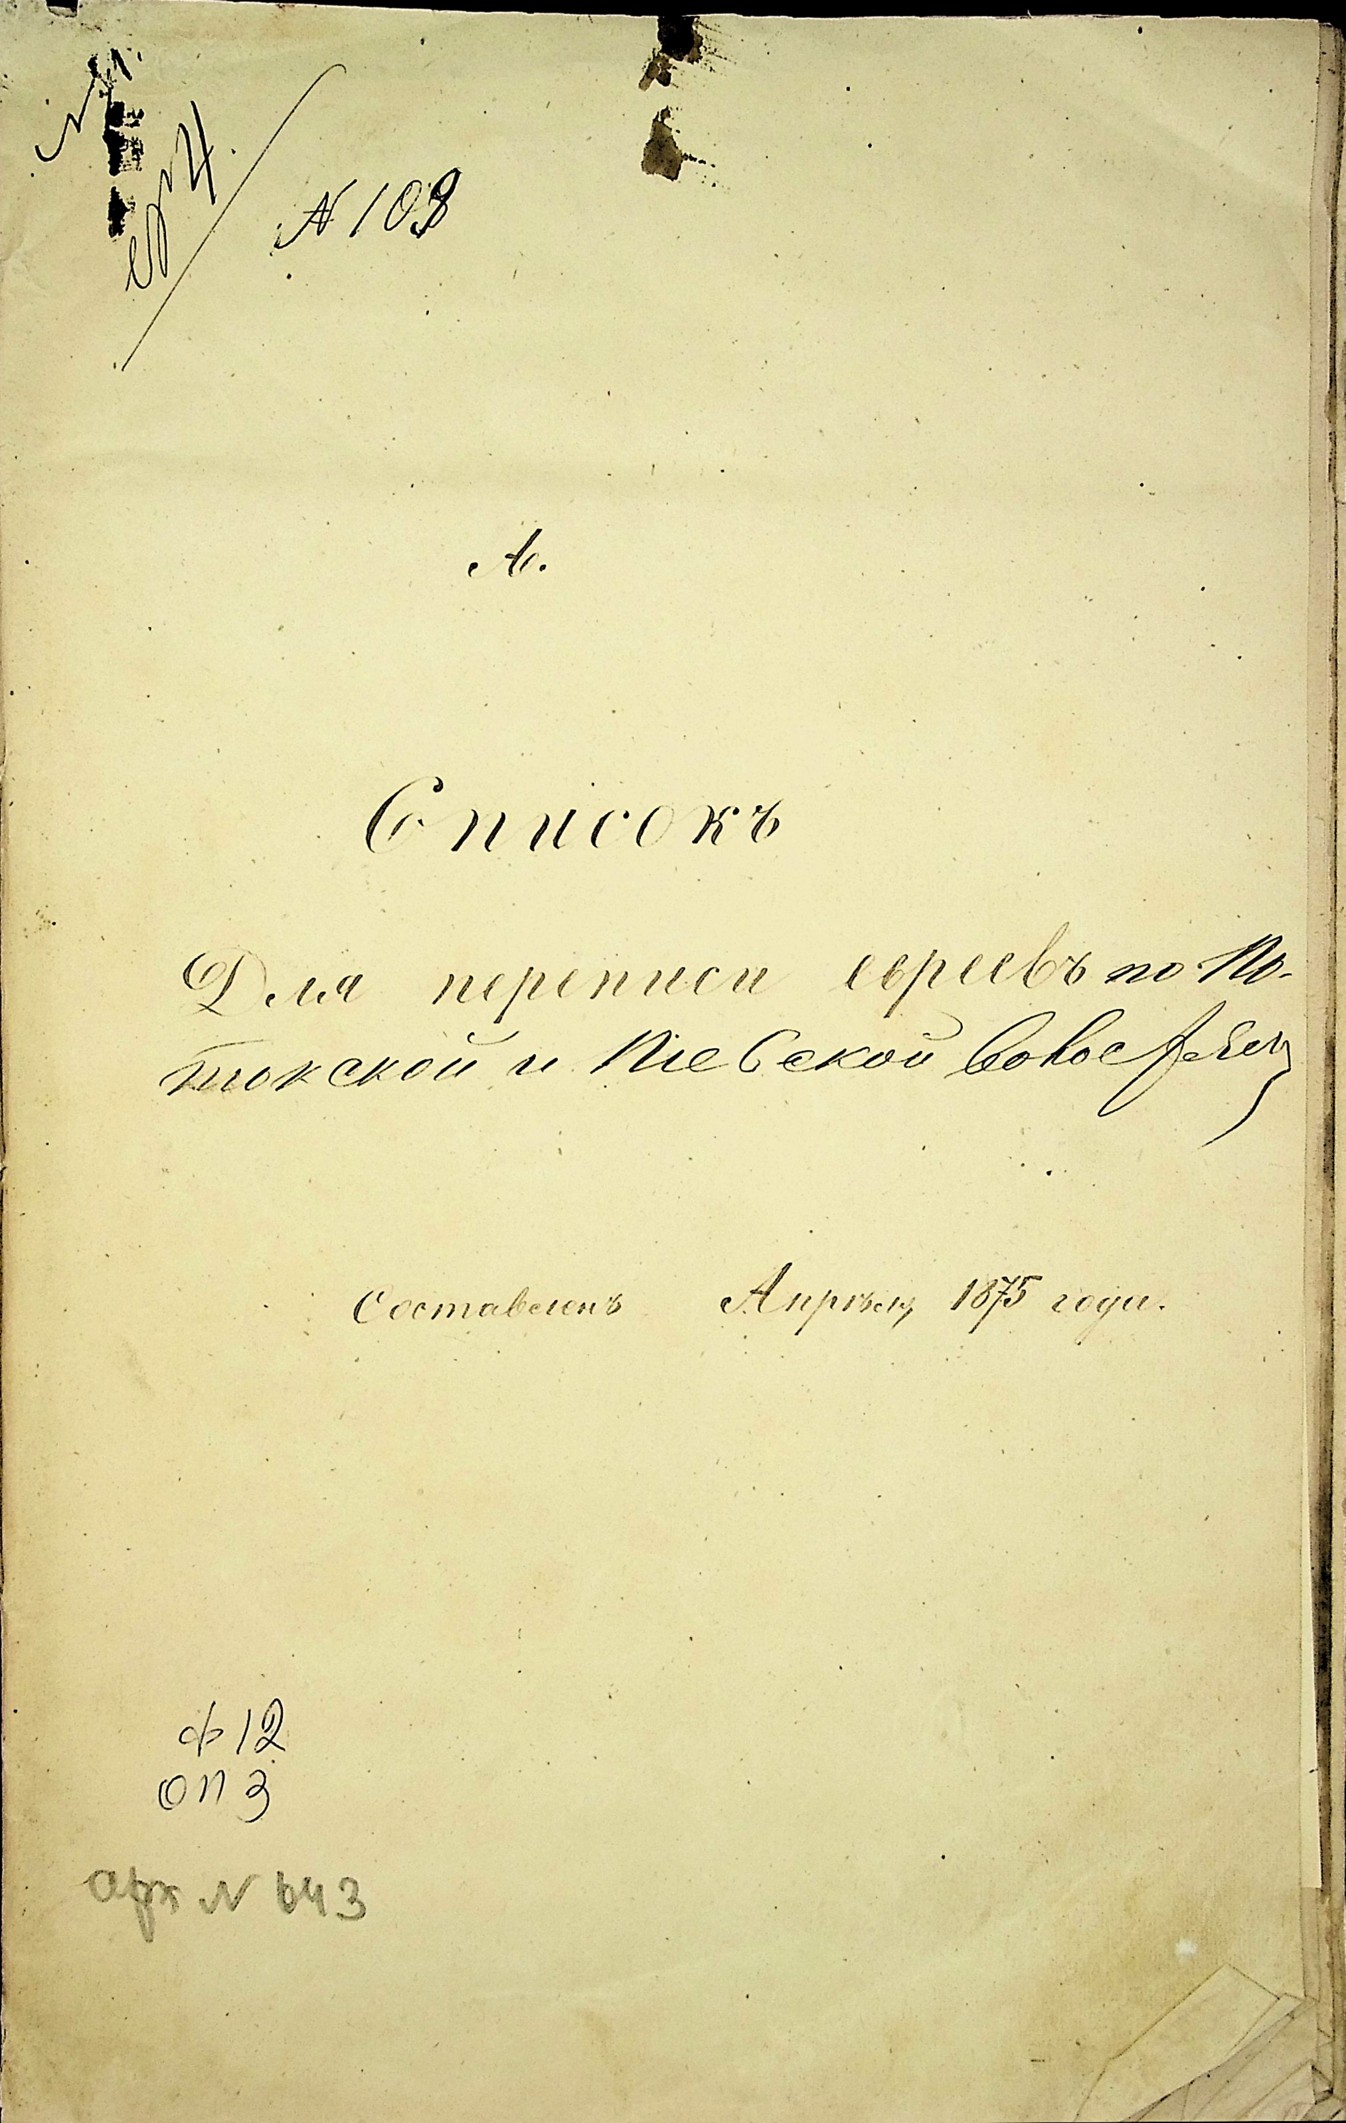 N 108
А.
Списокъ
Для переписи евреевъ по По-
токской и Пiевской волостямъ
Составленъ Апрѣля 1875 года.
ф 12
оп 3
арх N 643